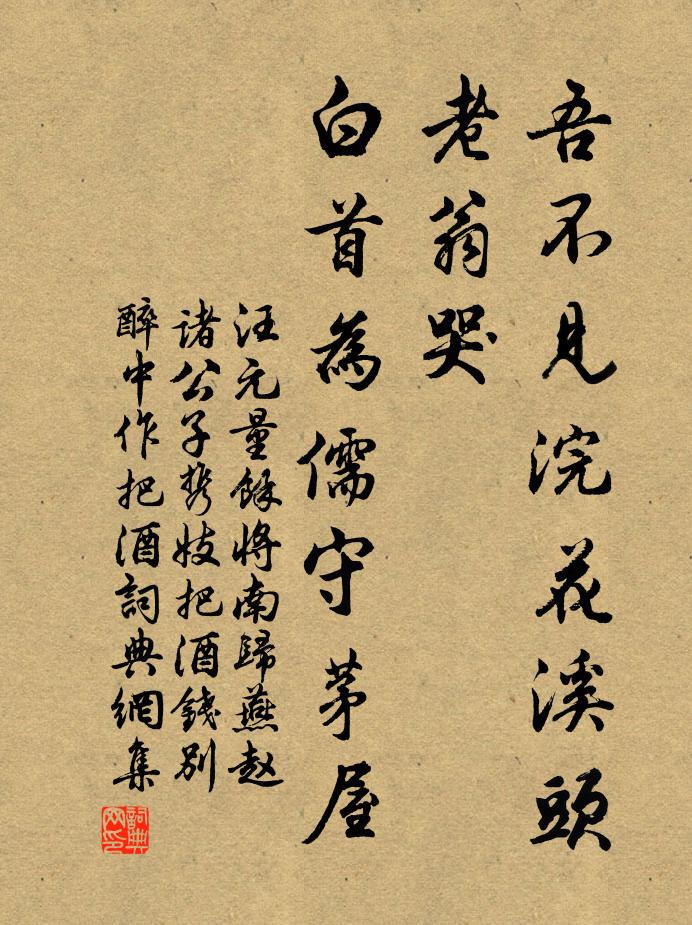 吾不見浣花溪頭
老翁哭
白首為儒守茅屋
汪元量餘將南歸燕赵
諸公子携妓把酒錢别
醉中作把酒詞典網集
詞典网印